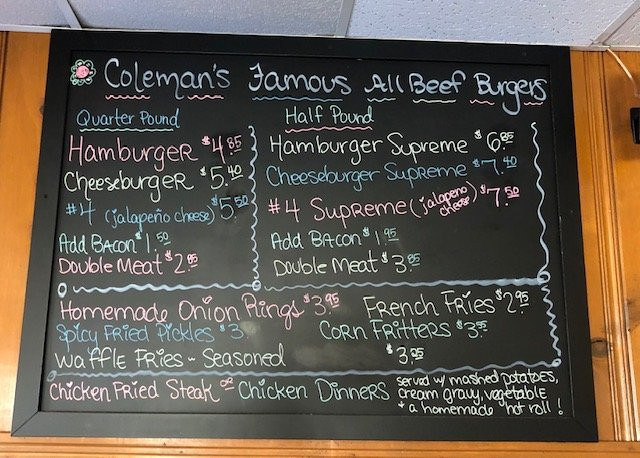 Coleman's Famous All Beef Burgers
Quarter Pound
Hamburger $4.85
Cheeseburger $5.40
#4 (jalapeño cheese) $5.50
Add Bacon $1.50
Double Meat $2.95
Half Pound
Hamburger Supreme $6.85
Cheeseburger Supreme $7.40
#4 Supreme (jalapeño cheese) $7.50
Add Bacon $1.95
Double Meat $3.85
Homemade Onion Rings $3.95 French Fries $2.95
Spicy Fried Pickles $3 Corn Fritters $3.95
Waffle Fries - Seasoned $3.25
Chicken Fried Steak or Chicken Dinners
served w/ mashed potatoes,
cream gravy, vegetable
+ a homemade hot roll!